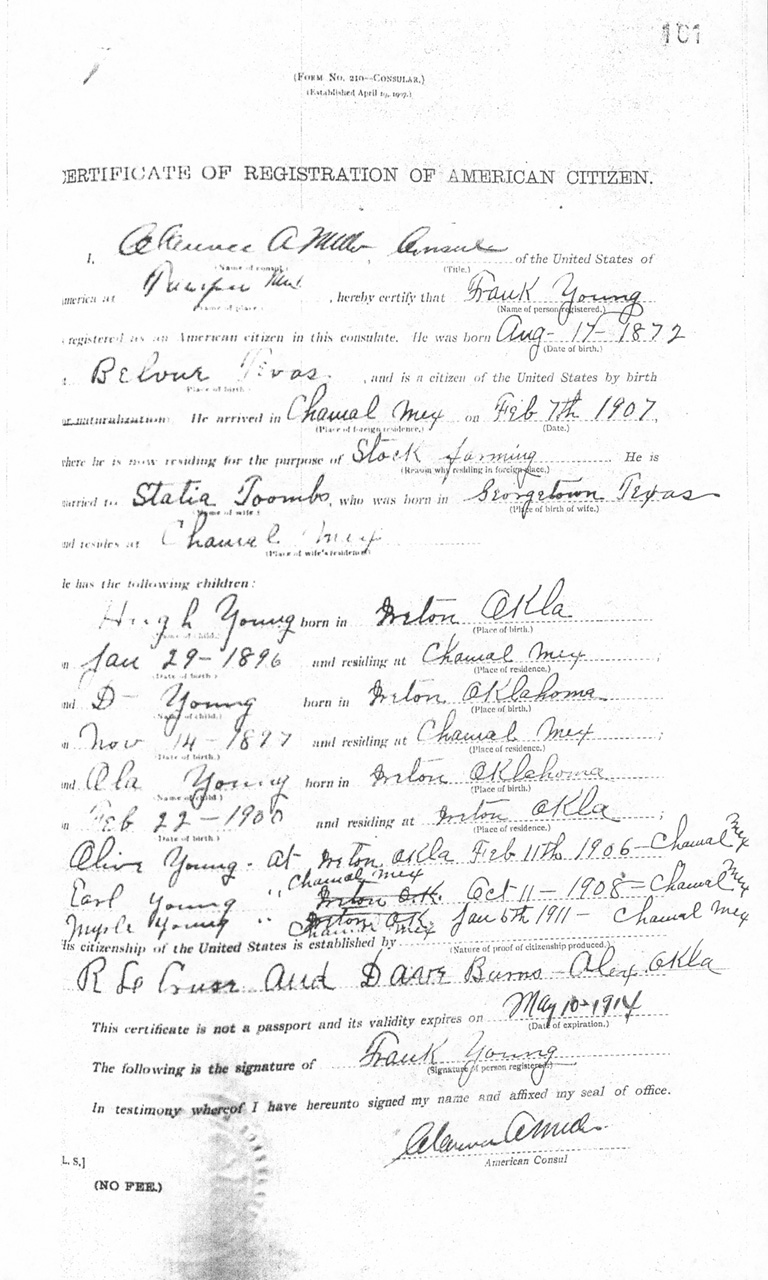 101
(FORM No. 210—CONSULAR.)
(Established April 19, 1907.)
ERTIFICATE OF REGISTRATION OF AMERICAN CITIZEN.
I, Clarence A Miller, Consul of the United States of
(Name of consul.) (Title.)
merica at Tampico Mex, hereby certify that Frank Young
(Name of place.) (Name of person registered.)
registered as an American citizen in this consulate. He was born Aug- 17- 1872
(Date of birth.)
Texas, and is a citizen of the United States by birth
(Place of birth.)
or naturalization. He arrived in Chamal Mex on Feb 7th 1907,
(Place of foreign residence.) (Date.)
where he is now residing for the purpose of Stock farming. He is
(Reason why residing in foreign place.)
arried to Statia Toombs, who was born in Georgetown Texas
(Name of wife.) (Place of birth of wife.)
nd resides at Chamal Mex
(Place of wife's residence.)
le has the following children:
Hugh Young born in Ireton Okla
(Name of child.) (Place of birth.)
n Jan 29- 1896 and residing at Chamal Mex;
(Date of birth.) (Place of residence.)
nd D- Young born in Ireton Oklahoma
(Name of child.) (Place of birth.)
n Nov 14- 1897 and residing at Chamal Mex;
(Date of birth.) (Place of residence.)
nd Ola Young born in Ireton Oklahoma
(Name of child.) (Place of birth.)
n Feb 22- 1900 and residing at Ireton Okla;
(Date of birth.) (Place of residence.)
Olive Young- at Ireton Okla Feb 11th 1906- Chamal Mex
Chamal Mex
Earl Young " Ireton O.K. Oct 11- 1908= Chamal Mex
Myrle Young " Ireton OK Jan 6th 1911- Chamal Mex
Chamal Mex
His citizenship of the United States is established by
(Nature of proof of citizenship produced.)
R Le Cruse And Dave Burns- Alex Okla
This certificate is not a passport and its validity expires on May 10- 1914
(Date of expiration.)
The following is the signature of Frank Young
(Signature of person registered.)
In testimony whereof I have hereunto signed my name and affixed my seal of office.
Clarence A Miller
American Consul
L. S.]
(NO FEE.)